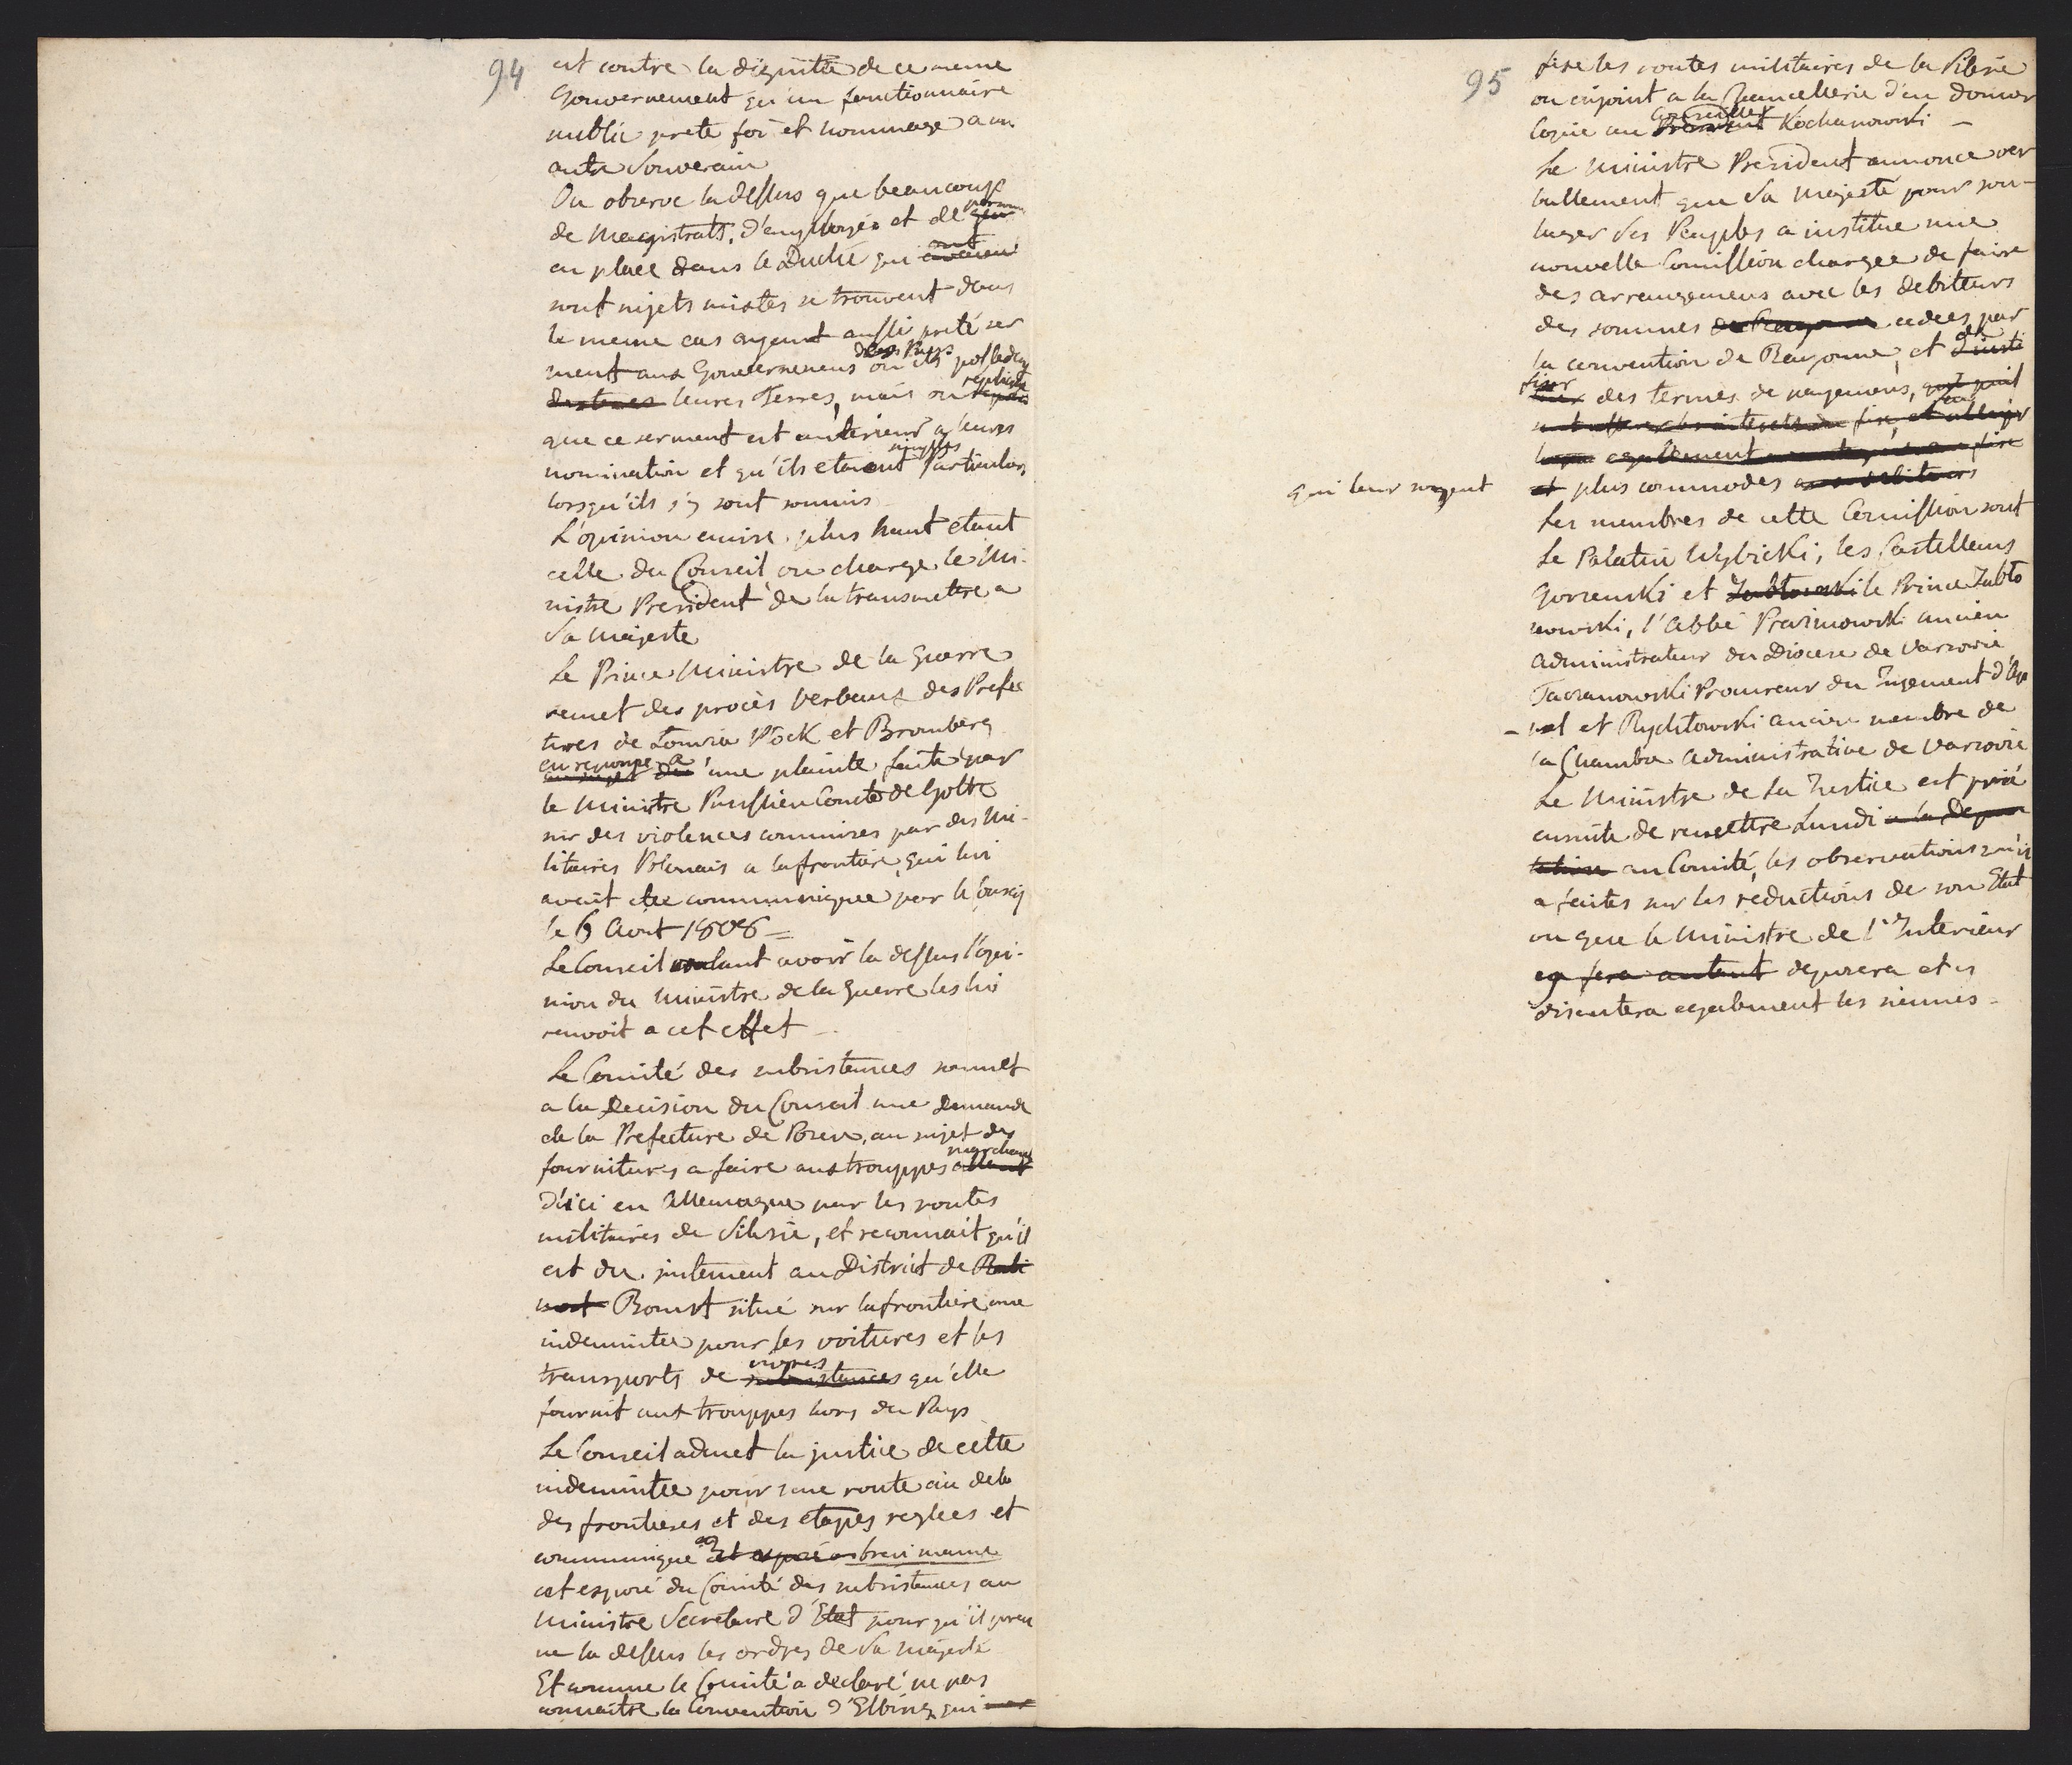 94
est contre la dignitée de ce meme
Gouvernement qu'un fonctionnaire
public prete foi et hommage a un
autre Souverain
On observe la dessus que beaucoup
de Magistrats, d'employés et de
en place dans le Duché qui ont
sont sujets mixtes se trouvent dans
le meme cas ayant aussi preté ser
ment aux Gouvernemens dans Pays où ils possedent
leures Terres, mais on replique
que ce serment est anterieur a leurs
nomination et qu'ils etaient simples Particuliers
lorsqu'ils s'y sont soumis
L'opinion emise plus haut etant
celle du Conseil on charge le Mi-
nistre President de la transmettre a
Sa Majeste
Le Prince Ministre de la Guerre
remet des procès verbaux des Prefec
tures de Lomza Plock et Bromberg
en reponse a une plainte faite par
le Ministre Prussien Comte de Goltz
sur des violences commises par des Mi-
litaires Polonais a la frontière, qui lui
avait etee communiquee par le Conseil
le 6 Aout 1808 =
Le Conseil voulant avoir la dessus l'opi-
nion du Ministre de la Guerre les lui
renvoit a cet effet –
Le Comité des subsistances soumet
a la Decision du Conseil une Demande
de la Prefecture de Posen, au sujet des
fournitures a faire aux trouppes marchant
d'ici en Allemagne par les routes
militaires de Silesie, et reconnait qu'il
est du justement au District de
Bomst situé sur la frontiere une
indemnitee pour les voitures et les
transports de vivres subsistances qu'elle
fournit aux trouppes hors du Pays
Le Conseil admet la justice de cette
indemnitee pour une route au dela
des frontieres et des etapes reglees et
communique cet exposé brevi manu
cet exposé du Comité des subsistances au
Ministre Secretaire d'Etat pour qu'il pren
ne la dessus les ordres de Sa Majesté
Et comme le Comité a declaré ne pas
connaitre la Convention d'Elbing qui
95
fixe les routes militaires de la Silesie
on enjoint a la Chancellerie d'en donner
Copie au Conseiller President Kochanowski –
Le Ministre President annonce ver
ballement que Sa Majesté pour sou-
lager ses Peuples a institue une
nouvelle Comission chargee de faire
des arrangemens avec les debiteurs
des sommes de Bayonne cedees par
la convention de Bayonne, et de
fixer des termes de payemens,
egallement
qui leur soyent
et plus commodes aux debiteurs
Les membres de cette Comission sont
Le Palatin Wybicki, les Castellans
Gorzenski et Jabłonowski le Prince Jabło
nowski, l'abbé Prazmowski ancien
administrateur du Diocese de Varsovie
Taczanowski Procureur du Jugement d'Ap
- pel et Rychłowski ancien membre de
la Chambre administrative de Varsovie
Le Ministre de la Justice est prié
ensuite de remettre Lundi a la Depu
tation au Comité, les observations qu'il
a faites sur les reductions de son Etat
ou que le Ministre de l'Interieur
en fera autant deposera et
discutera egalement les siennes –